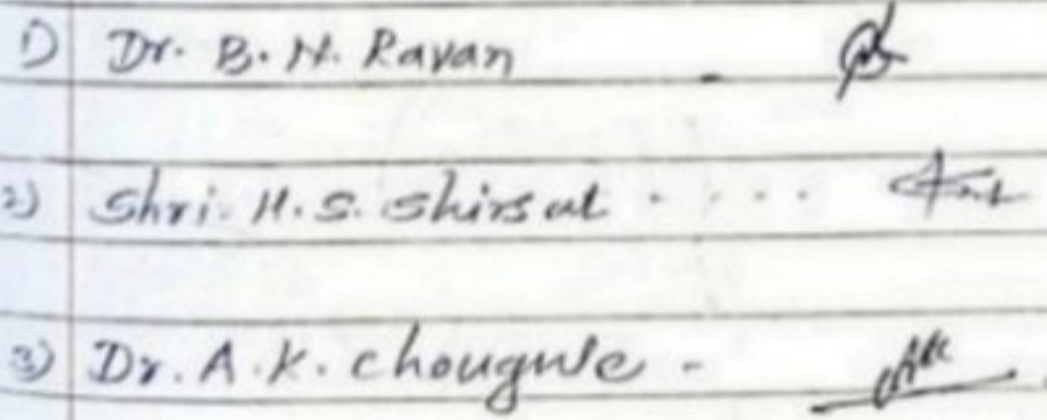 1) Dr. B. N. Ravan -
2) Shri. H. S. Shirsat . . . .
3) Dr. A. K. Chougule -